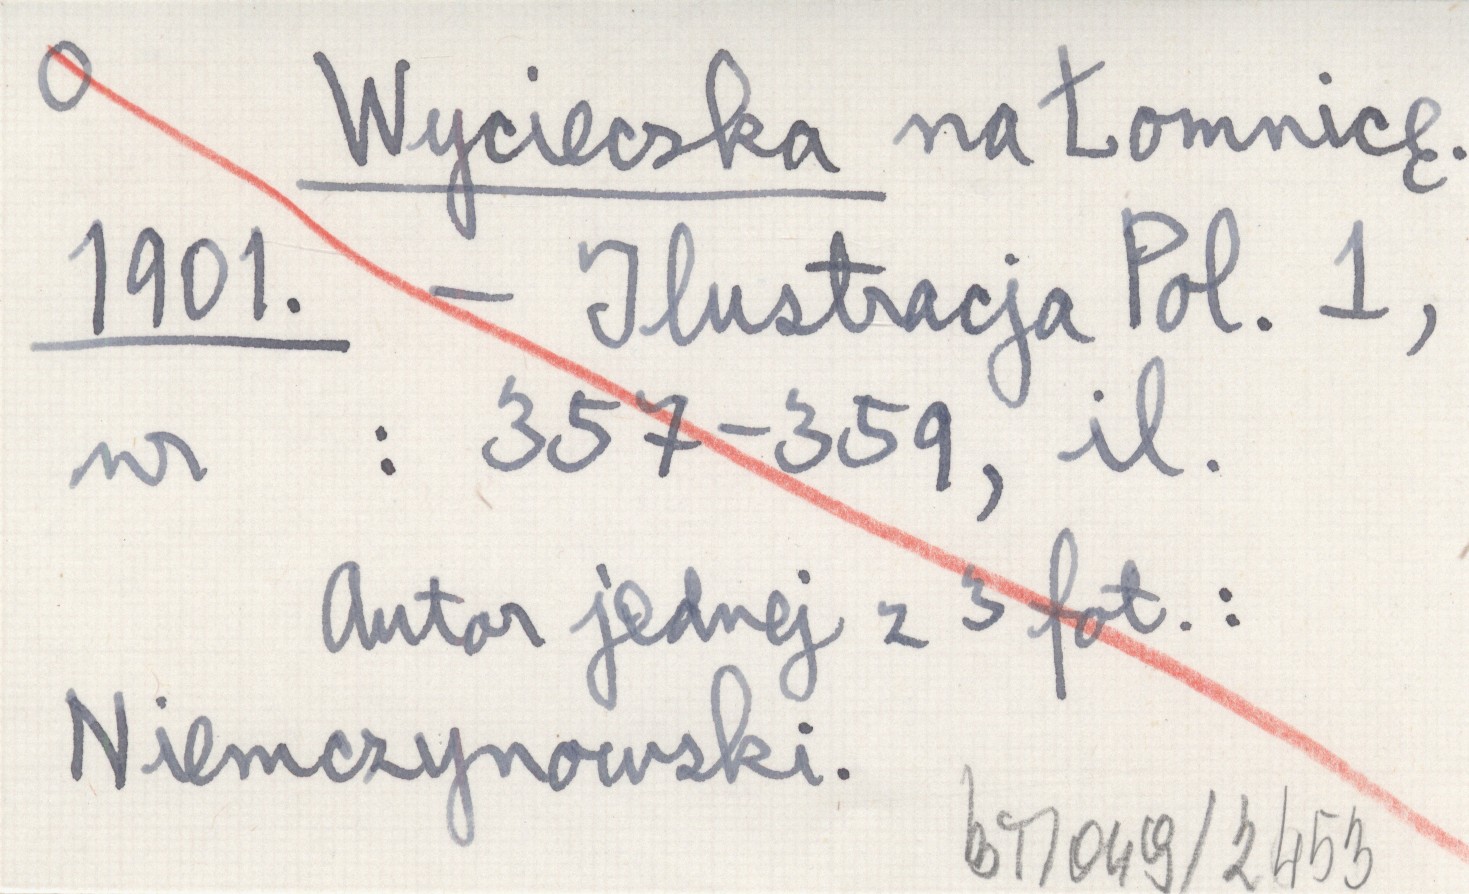 O Wycieczka na Łomnicę.
1901. — Ilustracja Pol. 1,
nr : 357-359, il.
Autor jednej z 3 fot.:
Niemczynowski.
049/2453